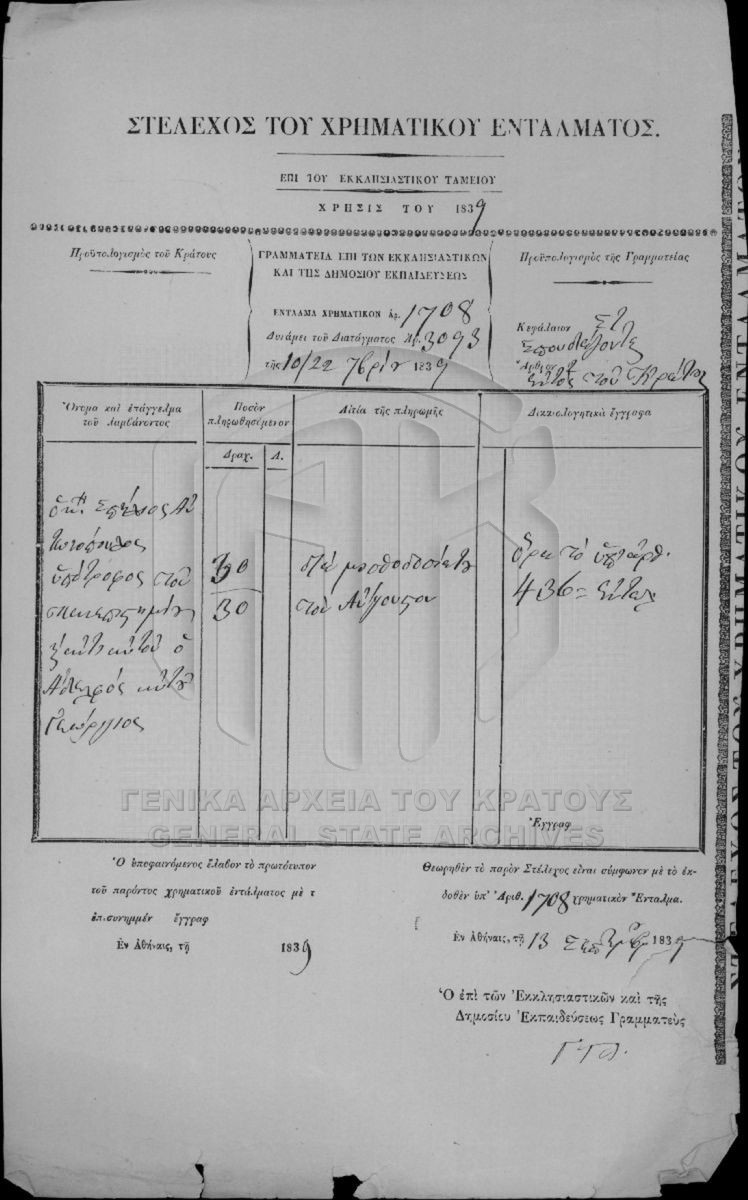 ΣΤΕΛΕΧΟΣ ΤΟΥ ΧΡΗΜΑΤΙΚΟΥ ΕΝΤΑΛΜΑΤΟΣ.
ΕΠΙ ΤΟΥ ΕΚΚΛΗΣΙΑΣΤΙΚΟΥ ΤΑΜΕΙΟΥ
ΧΡΗΣΙΣ ΤΟΥ 1839
Προϋπολογισμὸς τοῦ Κράτους
ΓΡΑΜΜΑΤΕΙΑ ΕΠΙ ΤΩΝ ΕΚΚΛΗΣΙΑΣΤΙΚΩΝ
ΚΑΙ ΤΗΣ ΔΗΜΟΣΙΟΥ ΕΚΠΑΙΔΕΥΣΕΩΣ
ΕΝΤΑΛΜΑ ΧΡΗΜΑΤΙΚΟΝ ἀρ. 1708
Δυνάμει τοῦ Διατάγματος Ἀρ. 3093
τῆς 10/22 7βρίου 1839
Προϋπολογισμὸς τῆς Γραμματείας
Κεφάλαιον Στ
Ἄρθρον
ἐντὸς τοῦ Κράτους
Ὄνομα καὶ ἐπάγγελμα
τοῦ λαμβάνοντος
Ποσὸν
πληρωθησόμενον
Δραχ. Λ.
Αἰτία τῆς πληρωμῆς
Δικαιολογητικὰ ἔγγραφα
ὑπότροφος τοῦ
ὁ
Ἀδελφός αὐτοῦ
Γεώργιος
30
30
διὰ μισθοδοσίαν
τοῦ Αὐγούστου
ὅρα τὸ ὑπ' ἀρθ.
436
Ἔγγραφ
ΓΕΝΙΚΑ ΑΡΧΕΙΑ ΤΟΥ ΚΡΑΤΟΥΣ
GENERAL STATE ARCHIVES
Ὁ ὑπεφαινόμενος ἔλαβον τὸ πρωτότυπον
τοῦ παρόντος χρηματικοῦ ἐντάλματος μὲ τ
ἐπισυνημμέν ἔγγραφ
Ἐν Ἀθήναις, τῇ 1839
Θεωρηθὲν τὸ παρὸν Στέλεχος εἶναι σύμφωνον μὲ τὸ ἐκ-
δοθὲν ὑπ' Ἀριθ. 1708 χρηματικὸν Ἔνταλμα.
Ἐν Ἀθήναις, τῇ 13 Σεπτεμβρ 1839
Ὁ ἐπὶ τῶν Ἐκκλησιαστικῶν καὶ τῆς
Δημοσίου Ἐκπαιδεύσεως Γραμματεὺς